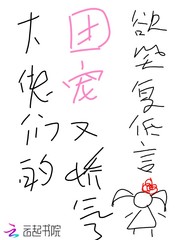 大佬们的
团宠又娇气
欲坐复低言
云起书院